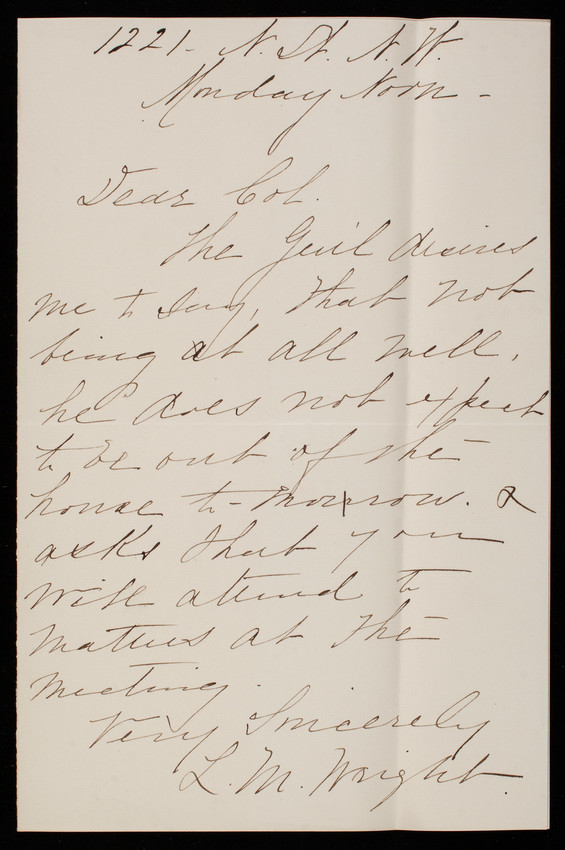 1221- N. St. N. W.
Monday Noon -
Dear Col.
The Gen'l desires
me to say, that not
being at all well,
he does not expect
to be out of the
house to-morrow. &
asks that you
will attend to
matters at the
meeting.
Very Sincerely
L. M. Wright.